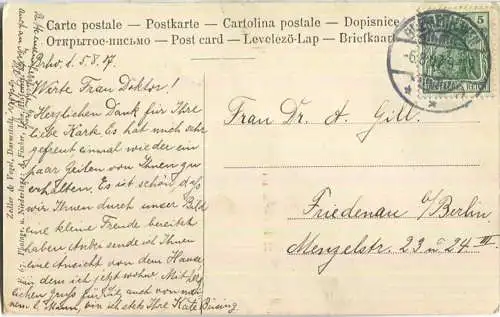 Carte postale — Postkarte — Cartolina postale — Dopisnice
Открытое-письмо — Post card — Levelező-Lap — Briefkaart
5
REICH
d. 5.8.07.
Werte Frau Doktor!
Herzlichen Dank für Ihre
liebe Karte. Es hat mich sehr
gefreut einmal wieder ein
paar Zeilen von Ihnen zu
erhalten. Es ist schön, daß
wir Ihnen durch unser Bild
eine kleine Freude bereitet
haben. Anbei sende ich Ihnen
eine Ansicht von dem Hause,
in dem ich jetzt wohne. Mit herz-
lichem Gruß für Sie, auch von mei-
nem l. Mann, bin ich stets Ihre Käte Büsing
Frau Dr. A. Gill.
Friedenau b/Berlin
Menzelstr. 23 u 24 III
Zedler & Vogel, Darmstadt